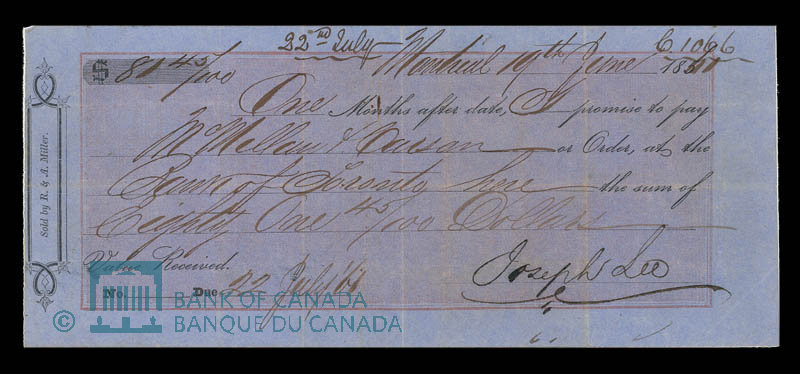 22nd July C 1096
$ 81 45/100 Montreal 19th June 1861
One Months after date, I promise to pay
McMellan & Carson or Order, at the
Bank of Toronto here the sum of
Eighty One 45/100 Dollars
Value Received.
Joseph Lee
No. Due 22 July/61
Sold by R. & A. Miller.
© BANK OF CANADA
BANQUE DU CANADA